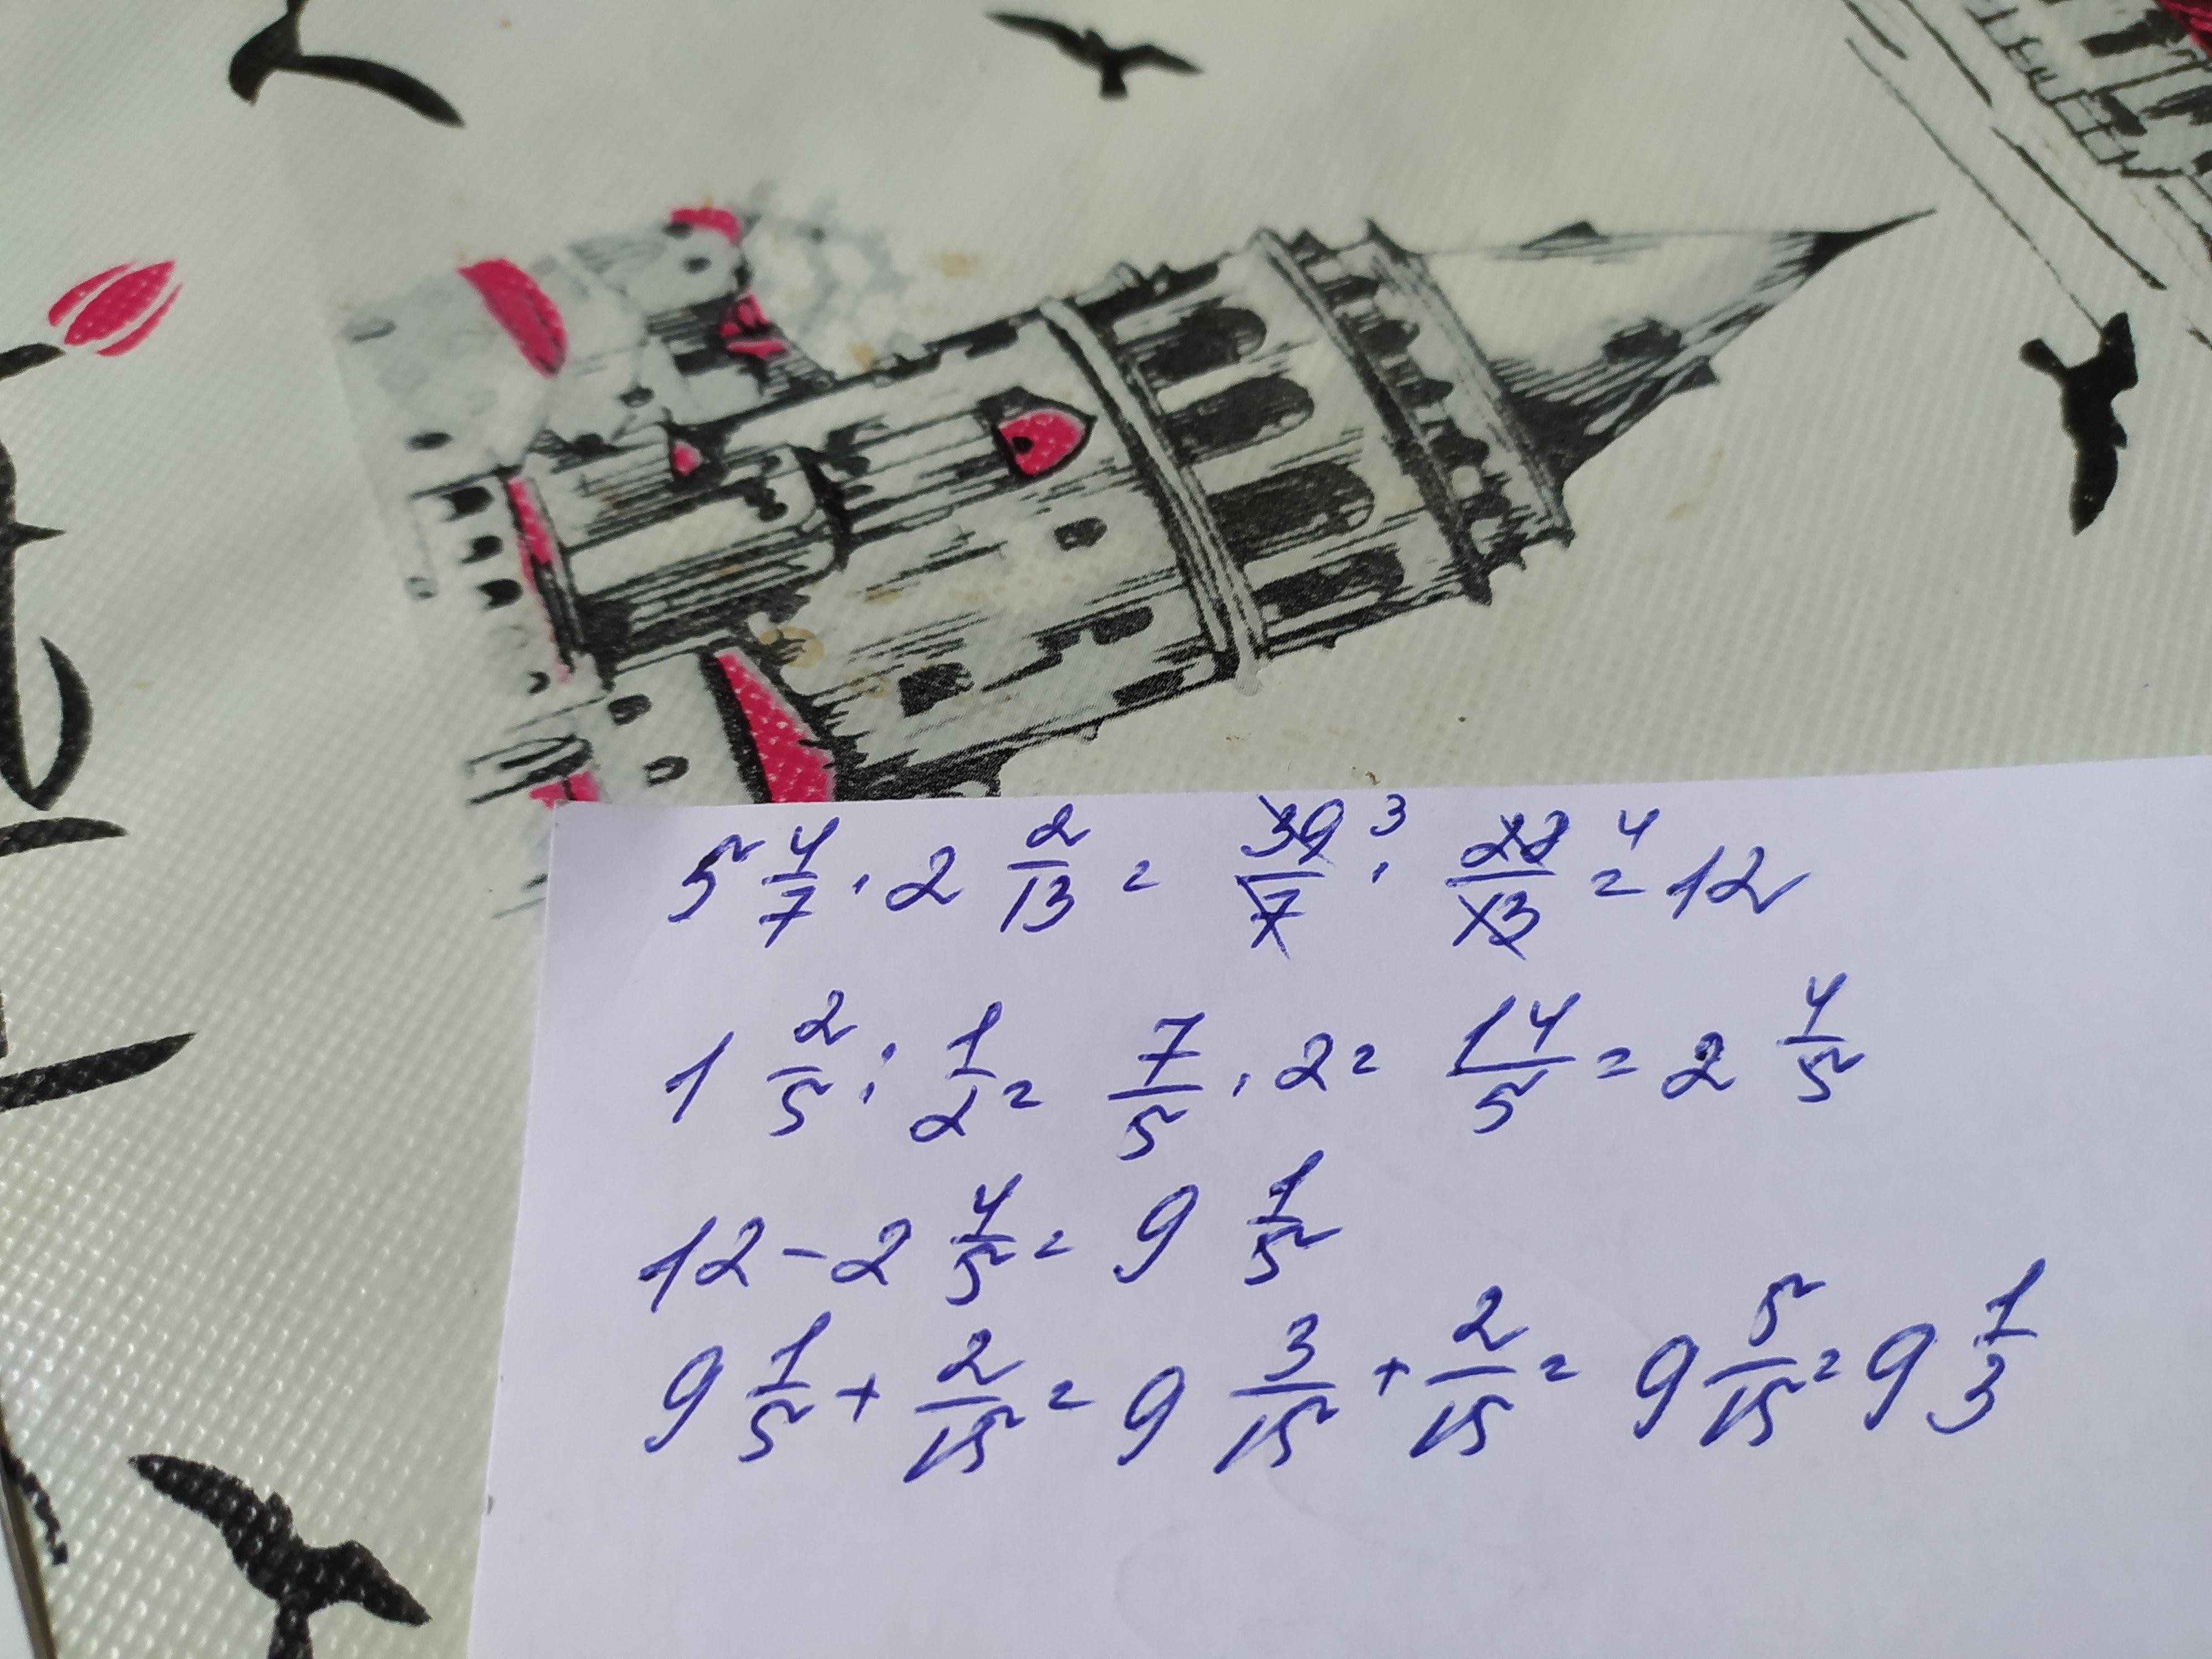 5 4/7 · 2 2/13 = 39/7 3 · 28/13 4 = 12
1 2/5 : 1/2 = 7/5 · 2 = 14/5 = 2 4/5
12 - 2 4/5 = 9 1/5
9 1/5 + 2/15 = 9 3/15 + 2/15 = 9 5/15 = 9 1/3